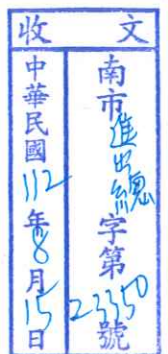 收文
南市進出總字第23350號
中華民國112年8月15日